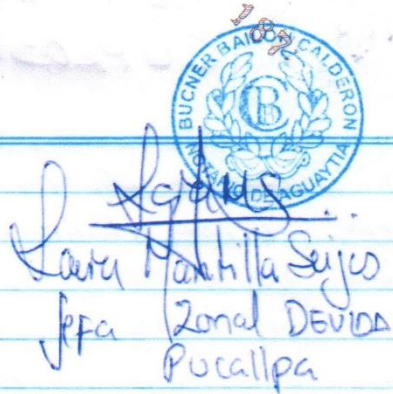 187
BUCNER BAILON CALDERON
CB
NOTARIO DE AGUAYTIA
Mantilla Seijas
Jefa Zonal DEVIDA
Pucallpa